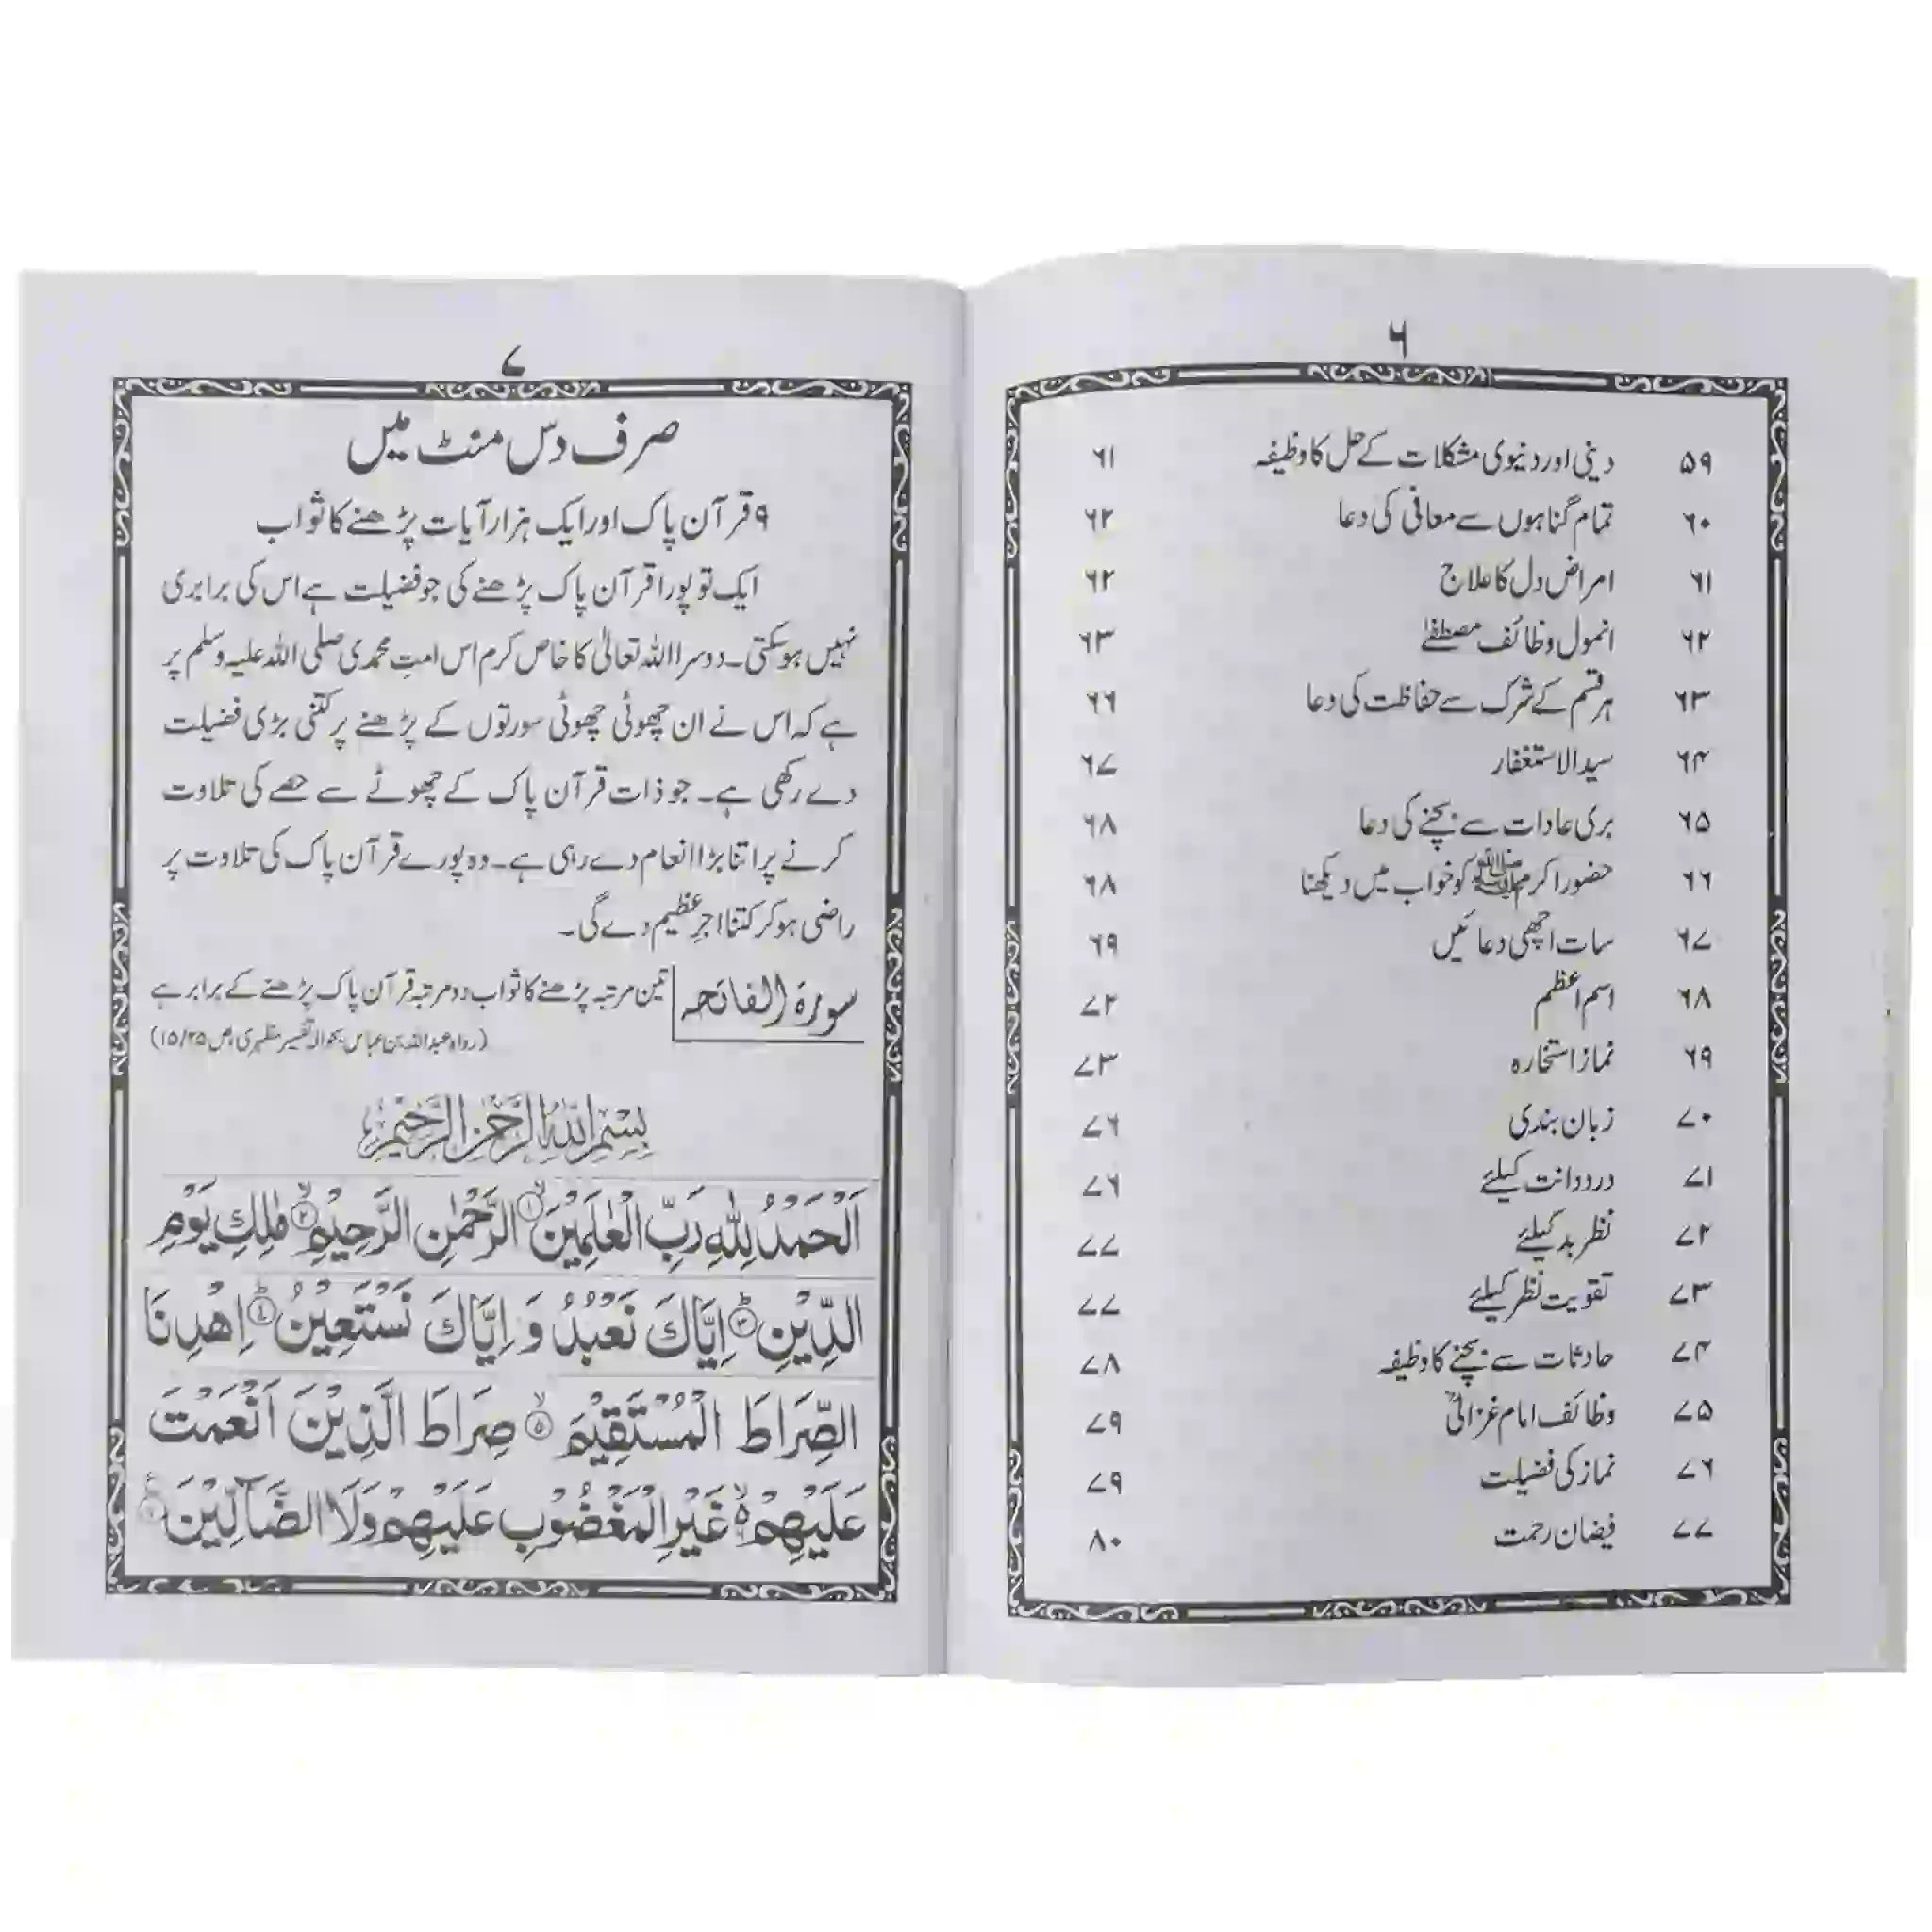 ۶
۵۹ دینی اور دنیوی مشکلات کے حل کا وظیفہ ۶۱
۶۰ تمام گناہوں سے معافی کی دعا ۶۲
۶۱ امراض دل کا علاج ۶۲
۶۲ انمول وظائف مصطفےٰ ۶۳
۶۳ ہر قسم کے شرک سے حفاظت کی دعا ۶۶
۶۴ سید الاستغفار ۶۷
۶۵ بری عادات سے بچنے کی دعا ۶۸
۶۶ حضور اکرم ﷺ کو خواب میں دیکھنا ۶۸
۶۷ سات اچھی دعائیں ۶۹
۶۸ اسم اعظم ۷۲
۶۹ نماز استخارہ ۷۳
۷۰ زبان بندی ۷۶
۷۱ درد دانت کیلئے ۷۶
۷۲ نظر بد کیلئے ۷۷
۷۳ تقویت نظر کیلئے ۷۷
۷۴ حادثات سے بچنے کا وظیفہ ۷۸
۷۵ وظائف امام غزالیؒ ۷۹
۷۶ نماز کی فضیلت ۷۹
۷۷ فیضان رحمت ۸۰
۷
صرف دس منٹ میں
۹ قرآن پاک اور ایک ہزار آیات پڑھنے کا ثواب
ایک تو پورا قرآن پاک پڑھنے کی جو فضیلت ہے اس کی برابری
نہیں ہوسکتی۔ دوسرا اللہ تعالیٰ کا خاص کرم اس امتِ محمدی صلی اللہ علیہ وسلم پر
ہے کہ اس نے ان چھوٹی چھوٹی سورتوں کے پڑھنے پر کتنی بڑی فضیلت
دے رکھی ہے۔ جو ذات قرآن پاک کے چھوٹے سے حصے کی تلاوت
کرنے پر اتنا بڑا انعام دے رہی ہے۔ وہ پورے قرآن پاک کی تلاوت پر
راضی ہو کر کتنا اجرِ عظیم دے گی۔
سورۃ الفاتحہ تین مرتبہ پڑھنے کا ثواب دو مرتبہ قرآن پاک پڑھنے کے برابر ہے
(رواہ عبداللہ بن عباس بحوالہ تفسیر مظہری ص ۱۵/۲۵)
بِسْمِ اللّٰهِ الرَّحْمٰنِ الرَّحِيْمِ
اَلْحَمْدُ لِلّٰهِ رَبِّ الْعٰلَمِيْنَ ۙ‏﴿۱﴾ الرَّحْمٰنِ الرَّحِيْمِ ۙ‏﴿۲﴾ مٰلِكِ يَوْمِ
الدِّيْنِ ؕ‏﴿۳﴾ اِيَّاكَ نَعْبُدُ وَ اِيَّاكَ نَسْتَعِيْنُ ؕ‏﴿۴﴾ اِهْدِنَا
الصِّرَاطَ الْمُسْتَقِيْمَ ۙ‏﴿۵﴾ صِرَاطَ الَّذِيْنَ اَنْعَمْتَ
عَلَيْهِمْ ۙ۬ۙ غَيْرِ الْمَغْضُوْبِ عَلَيْهِمْ وَلَا الضَّآلِّيْنَ